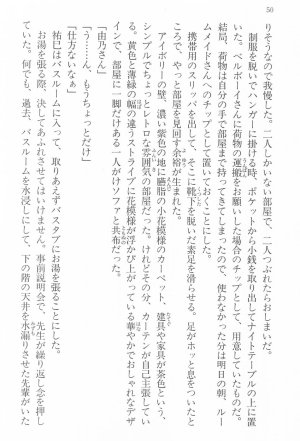 50
りそうなので我慢した。二人しかいない部屋で、二人つぶれたらおしまいだ。
制服を脱いでハンガーに掛ける時、ポケットから小銭を取り出してナイトテーブルの上に置
いた。ベルボーイさんに荷物の運搬をお願いした場合のチップとして、用意していたものだ。
結局、荷物は自分の手で部屋まで持ってきてしまったので、使わなかった分は明日の朝、ルー
ムメイドさんへのチップとして置いておくことにした。
携帯用のスリッパを出して、そこに靴下を脱いだ素足を滑らせる。足がホッと息をついたと
ころで、やっと部屋を見回す余裕が生まれた。
アイボリーの壁、濃い紫色の地に臙脂の小花模様のカーペット、建具や家具が茶色という、
シンプルでちょっとレトロな雰囲気の部屋だった。けれどその分、カーテンが自己主張してい
る。黄色と薄緑の幅の違うストライプに花模様が浮かび上がっている華やかでおしゃれなデザ
インで、部屋に一脚だけある一人がけソファと共布だった。
「由乃さん」
「う……ん、もうちょっとだけ」
「仕方ないなぁ」
祐巳はバスルームに入って、取りあえずバスタブにお湯を張ることにした。
お湯を張る際、決してあふれさせてはいけません。事前説明会で、先生が繰り返し念を押し
ていた。何でも、過去、バスルームを水浸しにして、下の階の天井を水漏りさせた先輩がいた